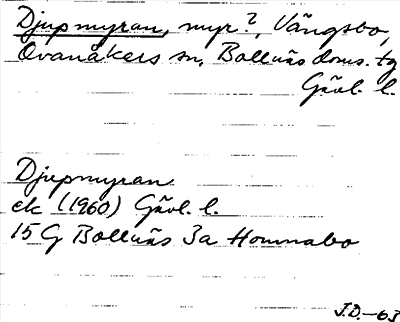 Djupmyran, myr?, Vängsbo,
Ovanåkers sn, Bollnäs doms. tg
Gävl. l.
Djupmyran
ek (1960) Gävl. l.
15 G Bollnäs 3a Homnabo
J.D.-63